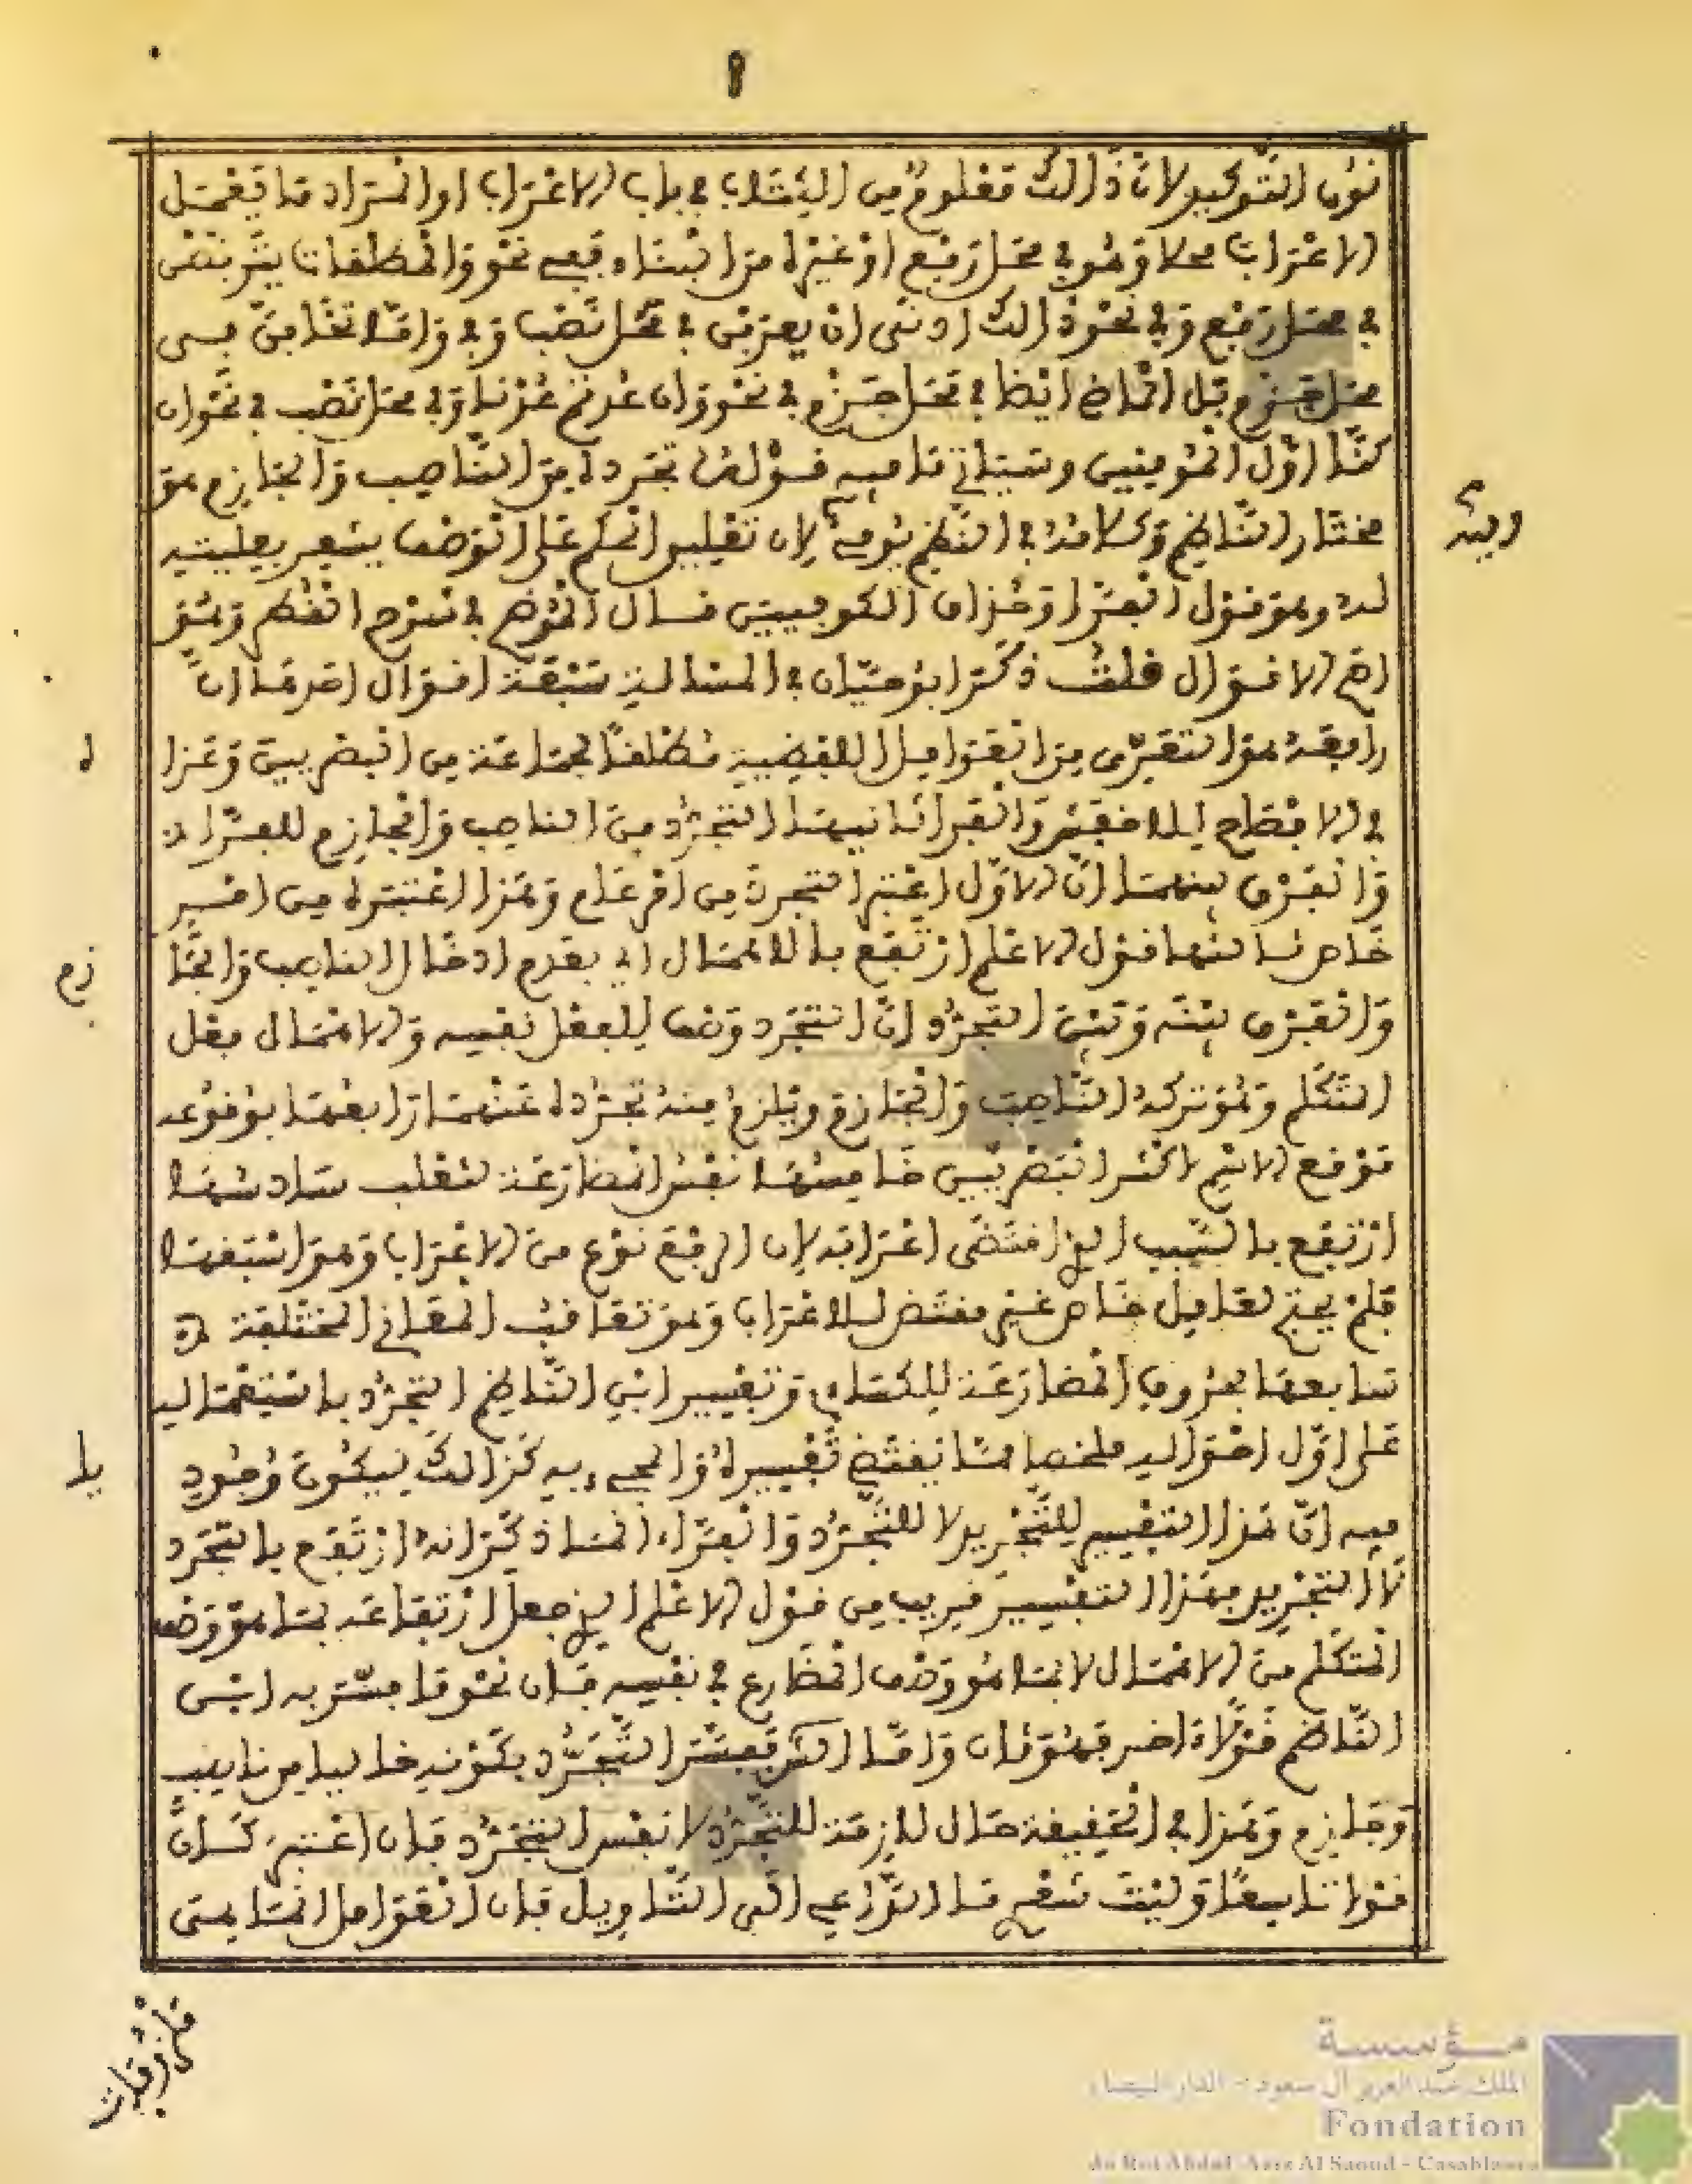 نون التوكيد لان ذالك معلوم من البناء في باب الاعراب او المراد ما يعمل
الاعراب محلا وهو في محل رفع او غيره من البناء فهي نحو والمطلقات يتربصن
في محل رفع وفي نحو ذالك ادنى ان يعرفن في محل نصب وفي واما تخافن من
محل جزم وبل الماض ايضا في محل جزم في نحو وان عدتم عدنا وفي محل نصب في نحو ان
كنا اول المومنين وسياتي ما فيه قوله تجرده من الناصب والجازم هو
مختار الناظم وكلامه في النظم يومئ لان تعليق الحكم على الوصف يشعر بعليته
له وهو قول الفرا وحذاق الكوفيين قال الموضح في شرح القطر وهو
اصح الاقوال قلت ذكر ابو حيان في المسالة سبعة اقوال احدها ان
رافعه هو التعري من العوامل اللفظية مطلقا لجماعة من البصريين وعزا
في الافصاح للاخفش والفرا ثانيها التجرد من الناصب والجازم للفرا
والفرق بينهما ان الاول اعتبر التجرد من امر عام وهذا اعتبره من امر
خاص ثالثها قول الاعلم ارتفع بالاهمال اي بعدم ادخال الناصب والجا
زم
والفرق بينه وبين التجرد ان التجرد وصف للفعل نفسه والاهمال فعل
المتكلم وهو تركه الناصب والجازم ويلزم منه تجرده عنهما رابعها بوقوعه
موقع الاسم لاكثر البصريين خامسها نفس المضارعة لثعلب سادسها
ارتفع بالسبب الذي اقتضى اعرابه لان الرفع نوع من الاعراب وهو
فلم يحتج لعامل خاص غير مقتض للاعراب وهو تعاقب المعاني المختلفة
سابعها بحروف المضارعة للكساءي وتفسير ابن الناظم التجرد باستعماله
على اول احواله ملخصا مما يقتضي تغييره والمجيء به كذالك ليكون وجود
فيه ان هذا التفسير للتجريد لا للتجرد والفراء انما ذكر انه ارتفع بالتجرد
لا التجريد بهذا التفسير قريب من قول الاعلم الذي جعل ارتفاعه بما هو وصف
المتكلم من الاهمال لا بما هو وصف المضارع في نفسه فان نحو ما فسر به ابن
الناظم قولا اخر فهو ثان واما المكودي ففسر التجرد بكونه خاليا من ناصب
وجازم وهذا في الحقيقة حال لازمة للتجرد لا نفس التجرد فان اعتبر كان
قولا تاسعا وليت شعري ما الداعي الى التاويل فان العوامل انما هي
مؤسسة
الملك عبد العزيز آل سعود - الدار البيضاء
Fondation
du Roi Abdul-Aziz Al Saoud - Casablanca